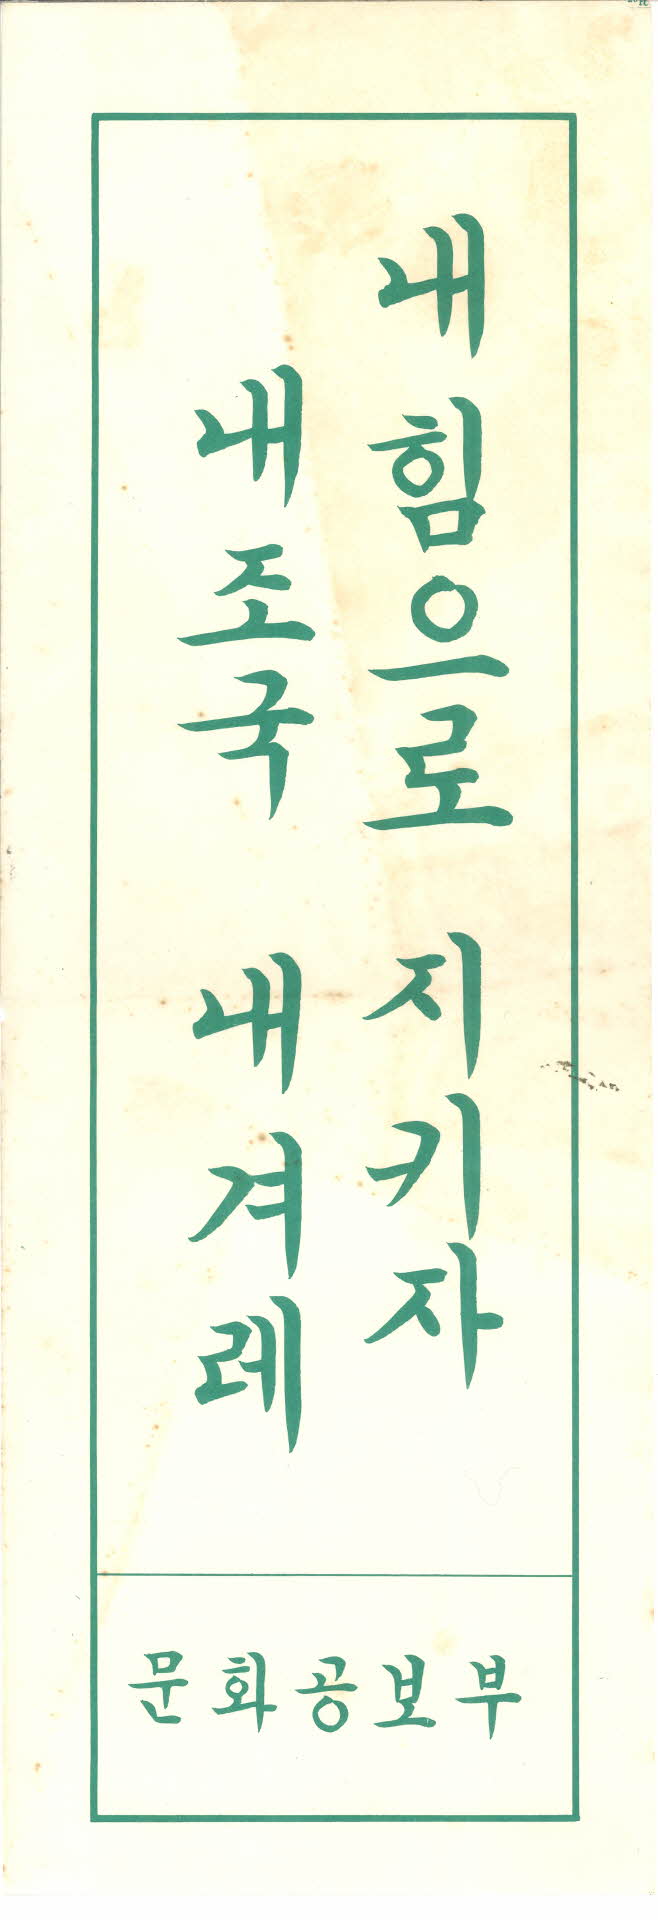 내 힘으로 지키자
내 조국 내 겨레
문화공보부